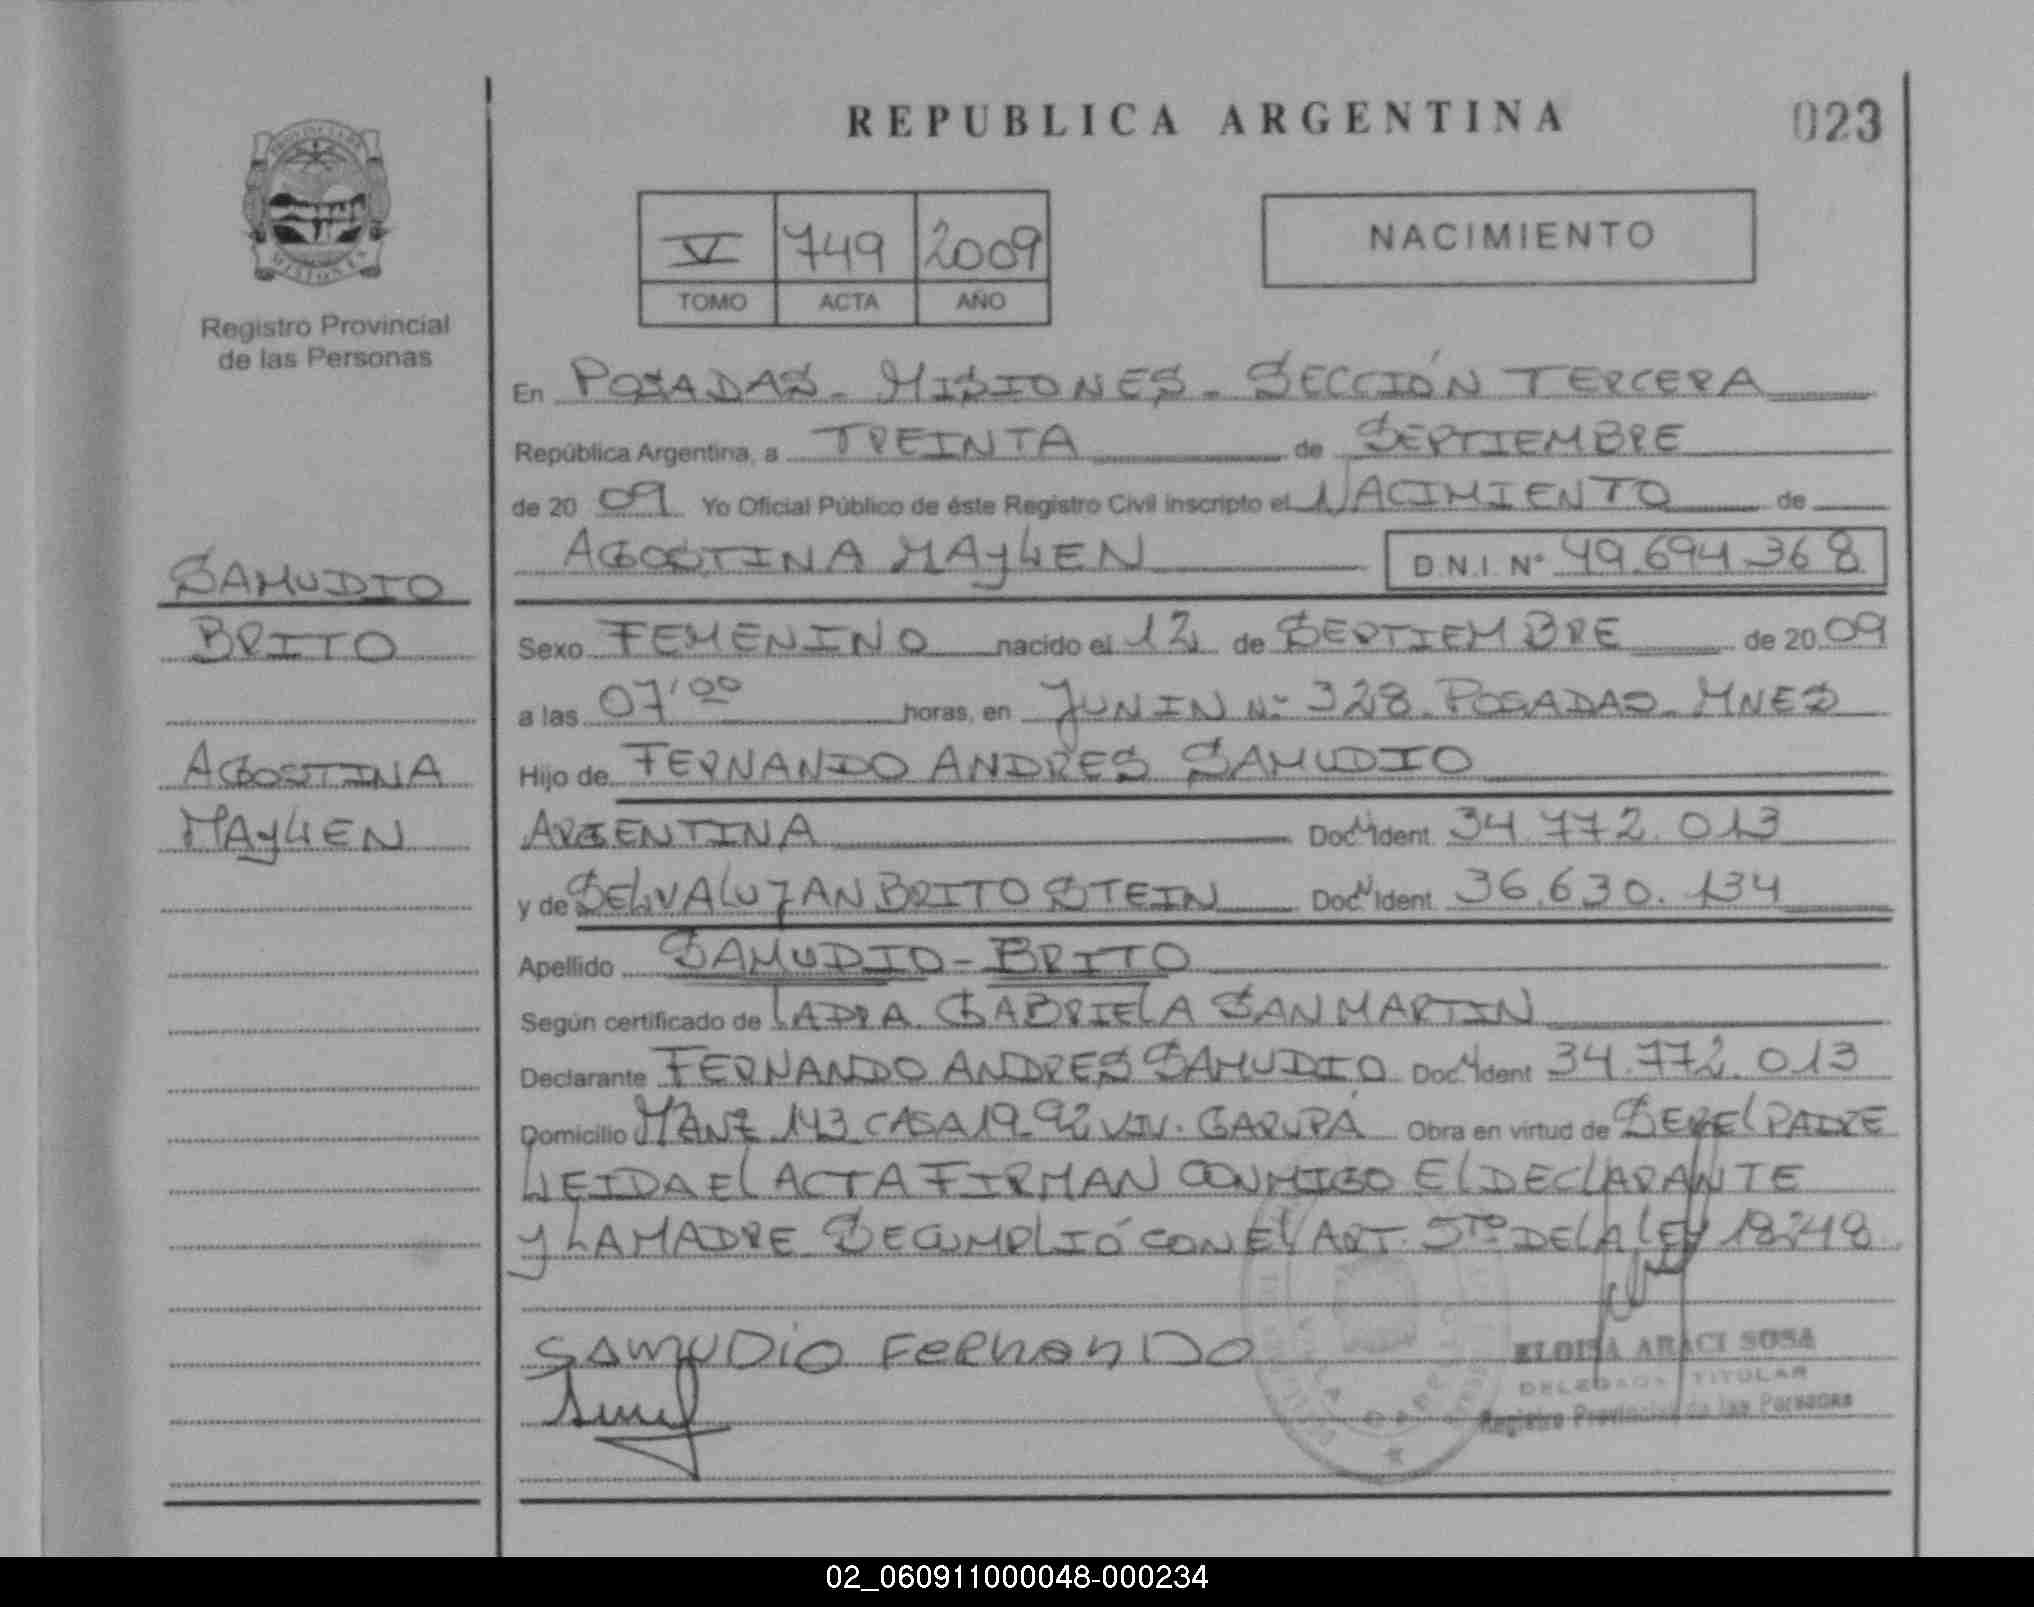 REPUBLICA ARGENTINA
023
PROVINCIA DE
MISIONES
Registro Provincial
de las Personas
V 749 2009
TOMO ACTA AÑO
NACIMIENTO
En POSADAS - MISIONES - SECCIÓN TERCERA
República Argentina, a TREINTA de SEPTIEMBRE
de 20 09 Yo Oficial Público de éste Registro Civil inscripto el NACIMIENTO de
AGOSTINA MAYLEN D.N.I. Nº 49.694.368
SAMUDIO
BRITO
AGOSTINA
MAYLEN
Sexo FEMENINO nacido el 12 de SEPTIEMBRE de 20 09
a las 07'00 horas, en JUNIN Nº 328 - POSADAS - MNES
Hijo de FERNANDO ANDRES SAMUDIO
ARGENTINA Doc N Ident. 34.772.013
y de SELVA LUJAN BRITO STEIN Doc N Ident. 36.630.134
Apellido SAMUDIO - BRITO
Según certificado de LA DRA. GABRIELA SAN MARTIN
Declarante FERNANDO ANDRES SAMUDIO Doc N Ident 34.772.013
Domicilio MANZ 143 CASA 19 92 VIV. GARUPÁ Obra en virtud de SER EL PADRE
LEIDA EL ACTA FIRMAN CONMIGO EL DECLARANTE
Y LA MADRE SE CUMPLIÓ CON EL ART. 5TO DE LA LEY 18248
SAMUDIO FERNANDO
ELOISA ARACI SOSA
DELEGADA TITULAR
Registro Provincial de las Personas
02_060911000048-000234